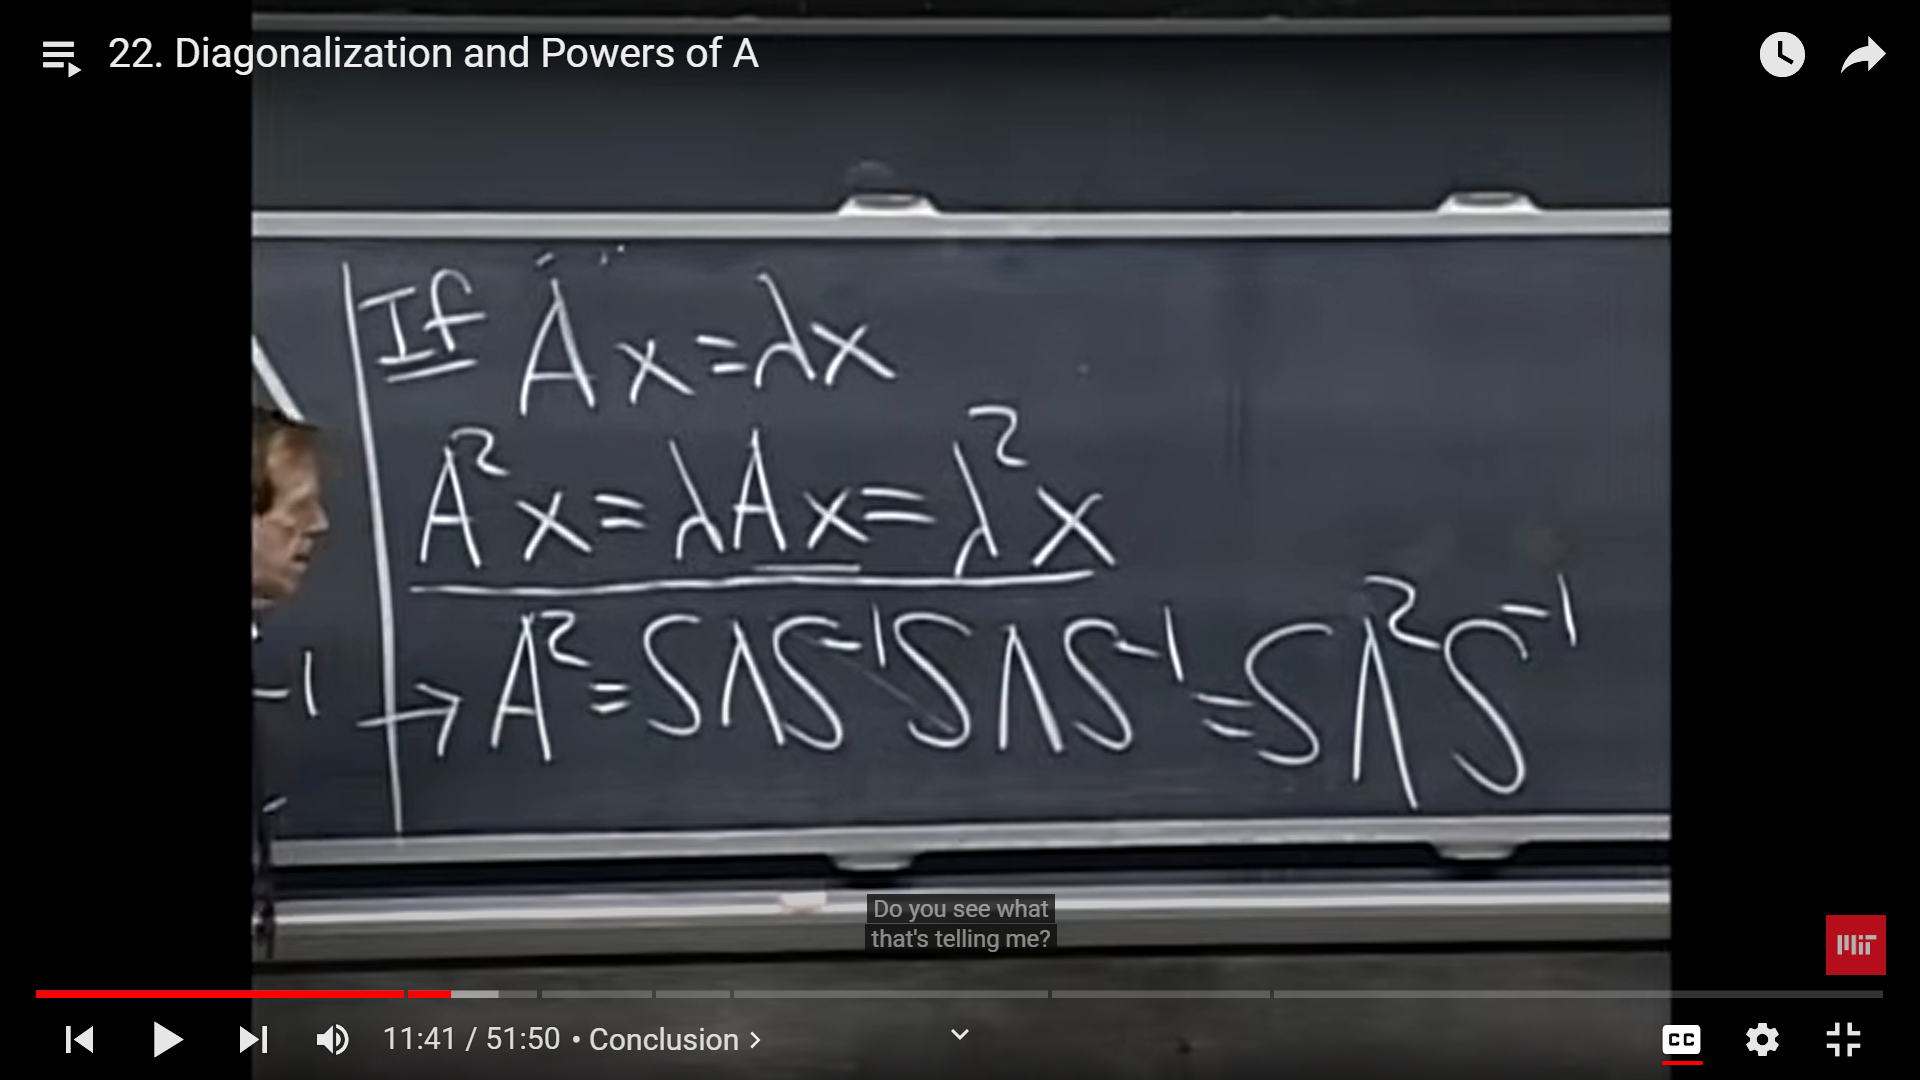 22. Diagonalization and Powers of A
If Ax=λx
A²x=λAx=λ²x
-1
→ A²=SΛS⁻¹SΛS⁻¹=SΛ²S⁻¹
Do you see what
that's telling me?
MIT
11:41 / 51:50 • Conclusion >
CC